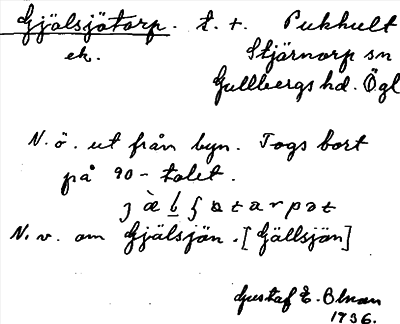 Gjälsjötorp. t. t. Pukhult
ek. Stjärnorp sn
Gullbergs hd. Ögl
N. ö. ut från byn. Togs bort
på 90-talet.
N. v. om Gjälsjön. [Gällsjön]
Gustaf E. Olman
1936.